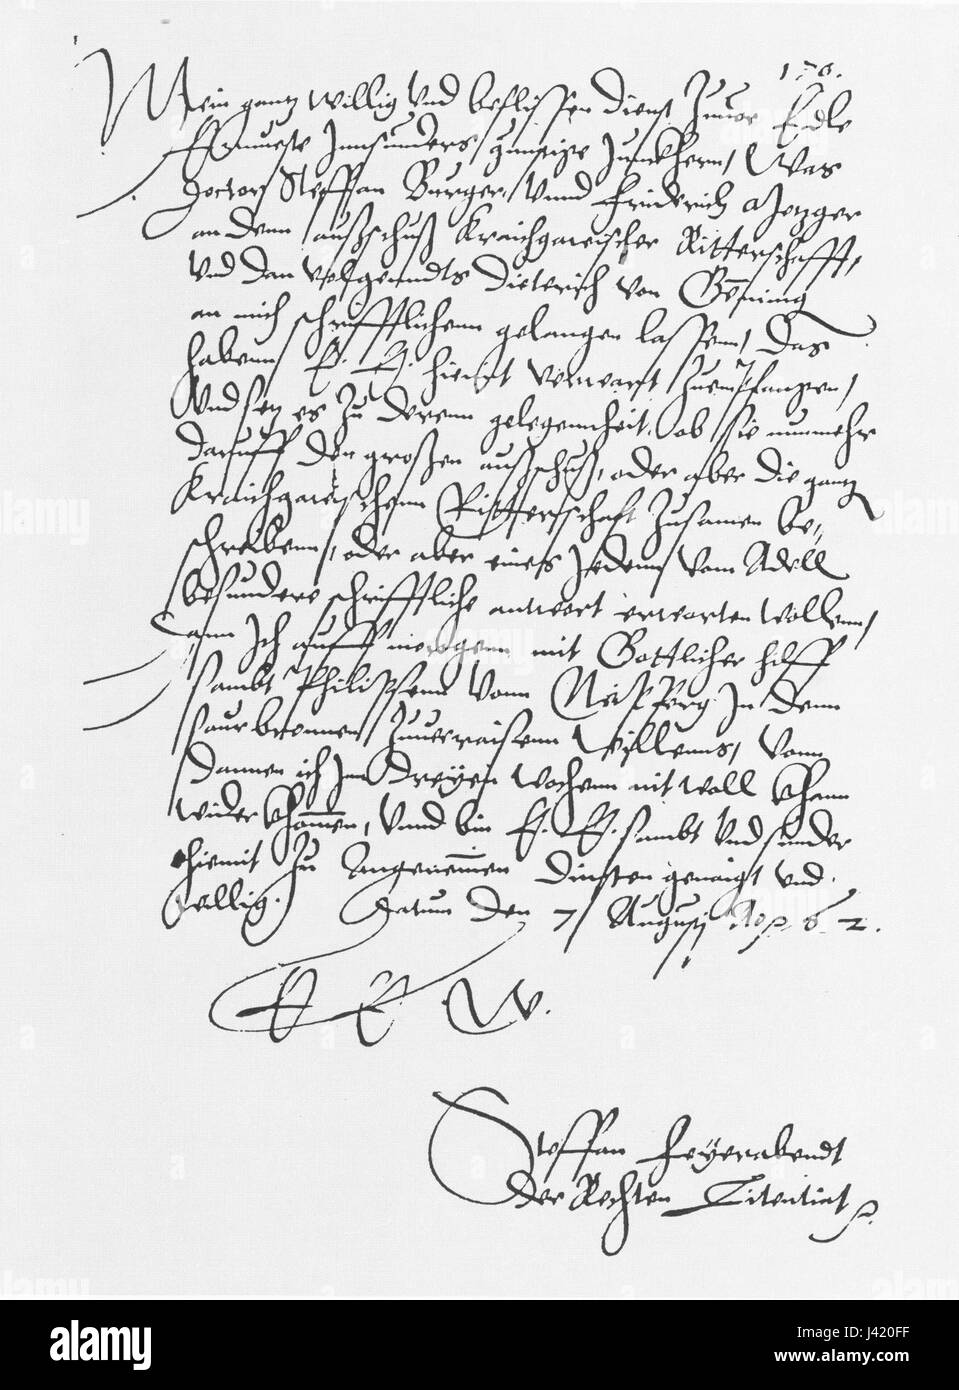 170.
Mein gantz willig vnd beflissen dienst zuuor Edle
Ernueste Innsunders gunstige Junckhern, Was
Doctor Steffan Burger, vnnd Friderich Metzger
an denn außschuß Kraichgaueischer Ritterschafft,
vnd dan volgenndts Dieterich von Gemming
an mich schrifftlichenn gelangen lassenn, das
habenn E. E. hiemit verwart zuempfangen,
vnd sey es zu derenn gelegennheit, ob sie nunmehr
daruff den großen außschuß, oder aber die gantz
Kraichgaueischenn Ritterschafft zusamen be,,
schreibenn, oder aber eines Jedenn vom Adell
besundere schrifftliche antwort erwarten wollenn,
dann Ich auff morgenn mit Gottlicher hilff
sambt Philipsenn vonn Neiperg In denn
saurbronnen zuuerraisenn willenns, vonn
dannen ich Inn dreyen wochenn nit woll khann
wider khommen, vnnd bin E. E. sambt vnd sunder
hiemit zu angenemen diensten genaigt vnd
willig. Datum den 7 Augusti Ao 62.
E E W.
Steffan Feyerabendt
der Rechten Licentiat
alamy
Image ID: J420FF
www.alamy.com